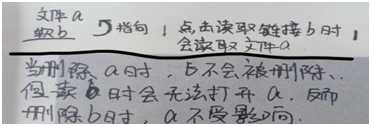 文件a
软b 指向 | 点击读取链接b时 |
会读取文件a
当删除a时,b不会被删除,
但读b时会无法打开a.反而
删除b时,a不受影响.